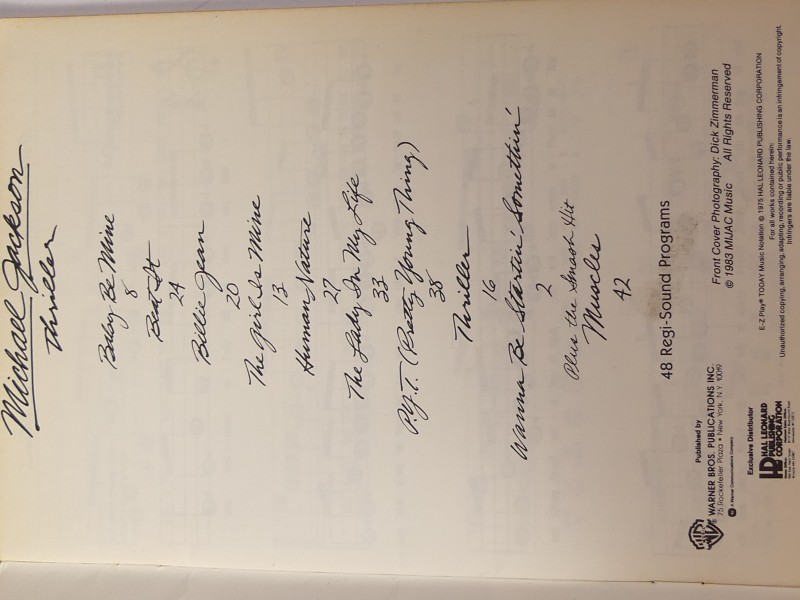 Michael Jackson
Thriller
Baby Be Mine
8
Beat It
24
Billie Jean
20
The Girl Is Mine
13
Human Nature
27
The Lady In My Life
33
P.Y.T. (Pretty Young Thing)
38
Thriller
16
Wanna Be Startin' Somethin'
2
Plus the Smash Hit
Muscles
42
48 Regi-Sound Programs
Front Cover Photography: Dick Zimmerman
© 1983 MIJAC Music All Rights Reserved
Published by
WARNER BROS. PUBLICATIONS INC.
75 Rockefeller Plaza • New York, N.Y. 10019
A Warner Communications Company
Exclusive Distributor
HAL LEONARD
PUBLISHING
CORPORATION
E-Z Play® TODAY Music Notation © 1975 HAL LEONARD PUBLISHING CORPORATION
For all works contained herein:
Unauthorized copying, arranging, adapting, recording or public performance is an infringement of copyright.
Infringers are liable under the law.